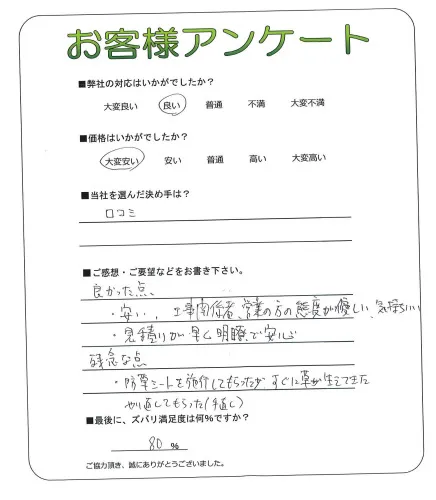 お客様アンケート
■弊社の対応はいかがでしたか？
大変良い 良い 普通 不満 大変不満
■価格はいかがでしたか？
大変安い 安い 普通 高い 大変高い
■当社を選んだ決め手は？
口コミ
■ご感想・ご要望などをお書き下さい。
良かった点、
・安い、工事関係者、営業の方の態度が優しい、気持ちいい
・見積りが早く明瞭で安心
残念な点
・防草シートを施行してもらったが すぐに草が生えてきた
やり直してもらった(手直し)
■最後に、ズバリ満足度は何%ですか？
80 %
ご協力頂き、誠にありがとうございました。